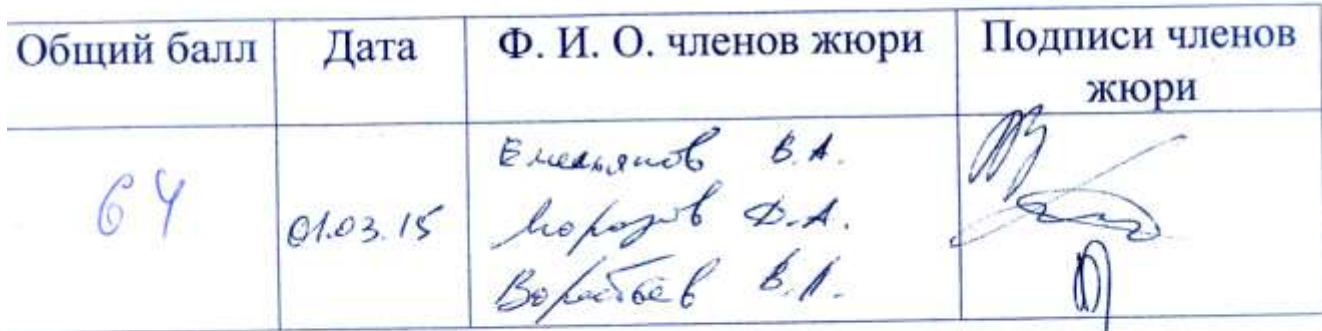 Общий балл Дата Ф. И. О. членов жюри Подписи членов
жюри
Емельянов В.А.
64 01.03.15 Морозов Д.А.
Воробьев В.А.